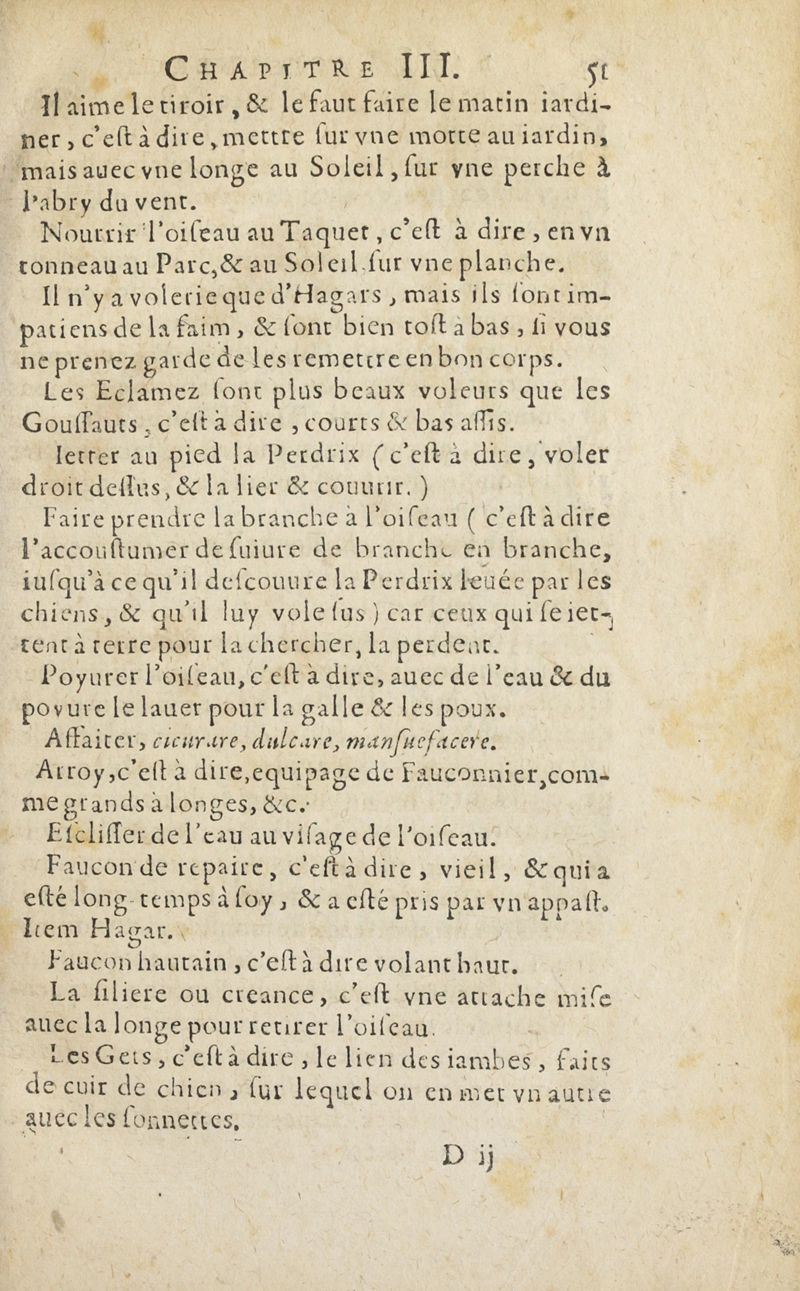 CHAPITRE III. 51
Il aime le tiroir, & le faut faire le matin iardi-
ner, c'eſt à dire, mettre ſur vne motte au iardin,
mais auec vne longe au Soleil, ſur vne perche à
l'abry du vent.
Nourrir l'oiſeau au Taquet, c'eſt à dire, en vn
tonneau au Parc, & au Soleil ſur vne planche.
Il n'y a volerie que d'Hagars, mais ils ſont im-
patiens de la faim, & ſont bien toſt à bas, ſi vous
ne prenez garde de les remettre en bon corps.
Les Eclamez ſont plus beaux voleurs que les
Gouſſauts, c'eſt à dire, courts & bas aſſis.
Ietter au pied la Perdrix (c'eſt à dire, voler
droit deſſus, & la lier & couurir.)
Faire prendre la branche à l'oiſeau (c'eſt à dire
l'accouſtumer de ſuiure de branche en branche,
iuſqu'à ce qu'il deſcouure la Perdrix leuée par les
chiens, & qu'il luy vole ſus) car ceux qui ſe iet-
tent à terre pour la chercher, la perdent.
Poyurer l'oiſeau, c'eſt à dire, auec de l'eau & du
povure le lauer pour la galle & les poux.
Affaiter, cicurare, dulcare, manſuefacere.
Arroy, c'eſt à dire, equipage de Fauconnier, com-
me grands à longes, &c.
Eſcliſſer de l'eau au viſage de l'oiſeau.
Faucon de repaire, c'eſt à dire, vieil, & qui a
eſté long-temps à ſoy, & a eſté pris par vn appaſt.
Item Hagar.
Faucon hautain, c'eſt à dire volant haut.
La filiere ou creance, c'eſt vne attache miſe
auec la longe pour retirer l'oiſeau.
Les Gets, c'eſt à dire, le lien des iambes, faits
de cuir de chien, ſur lequel on en met vn autre
auec les ſonnettes.
D ij